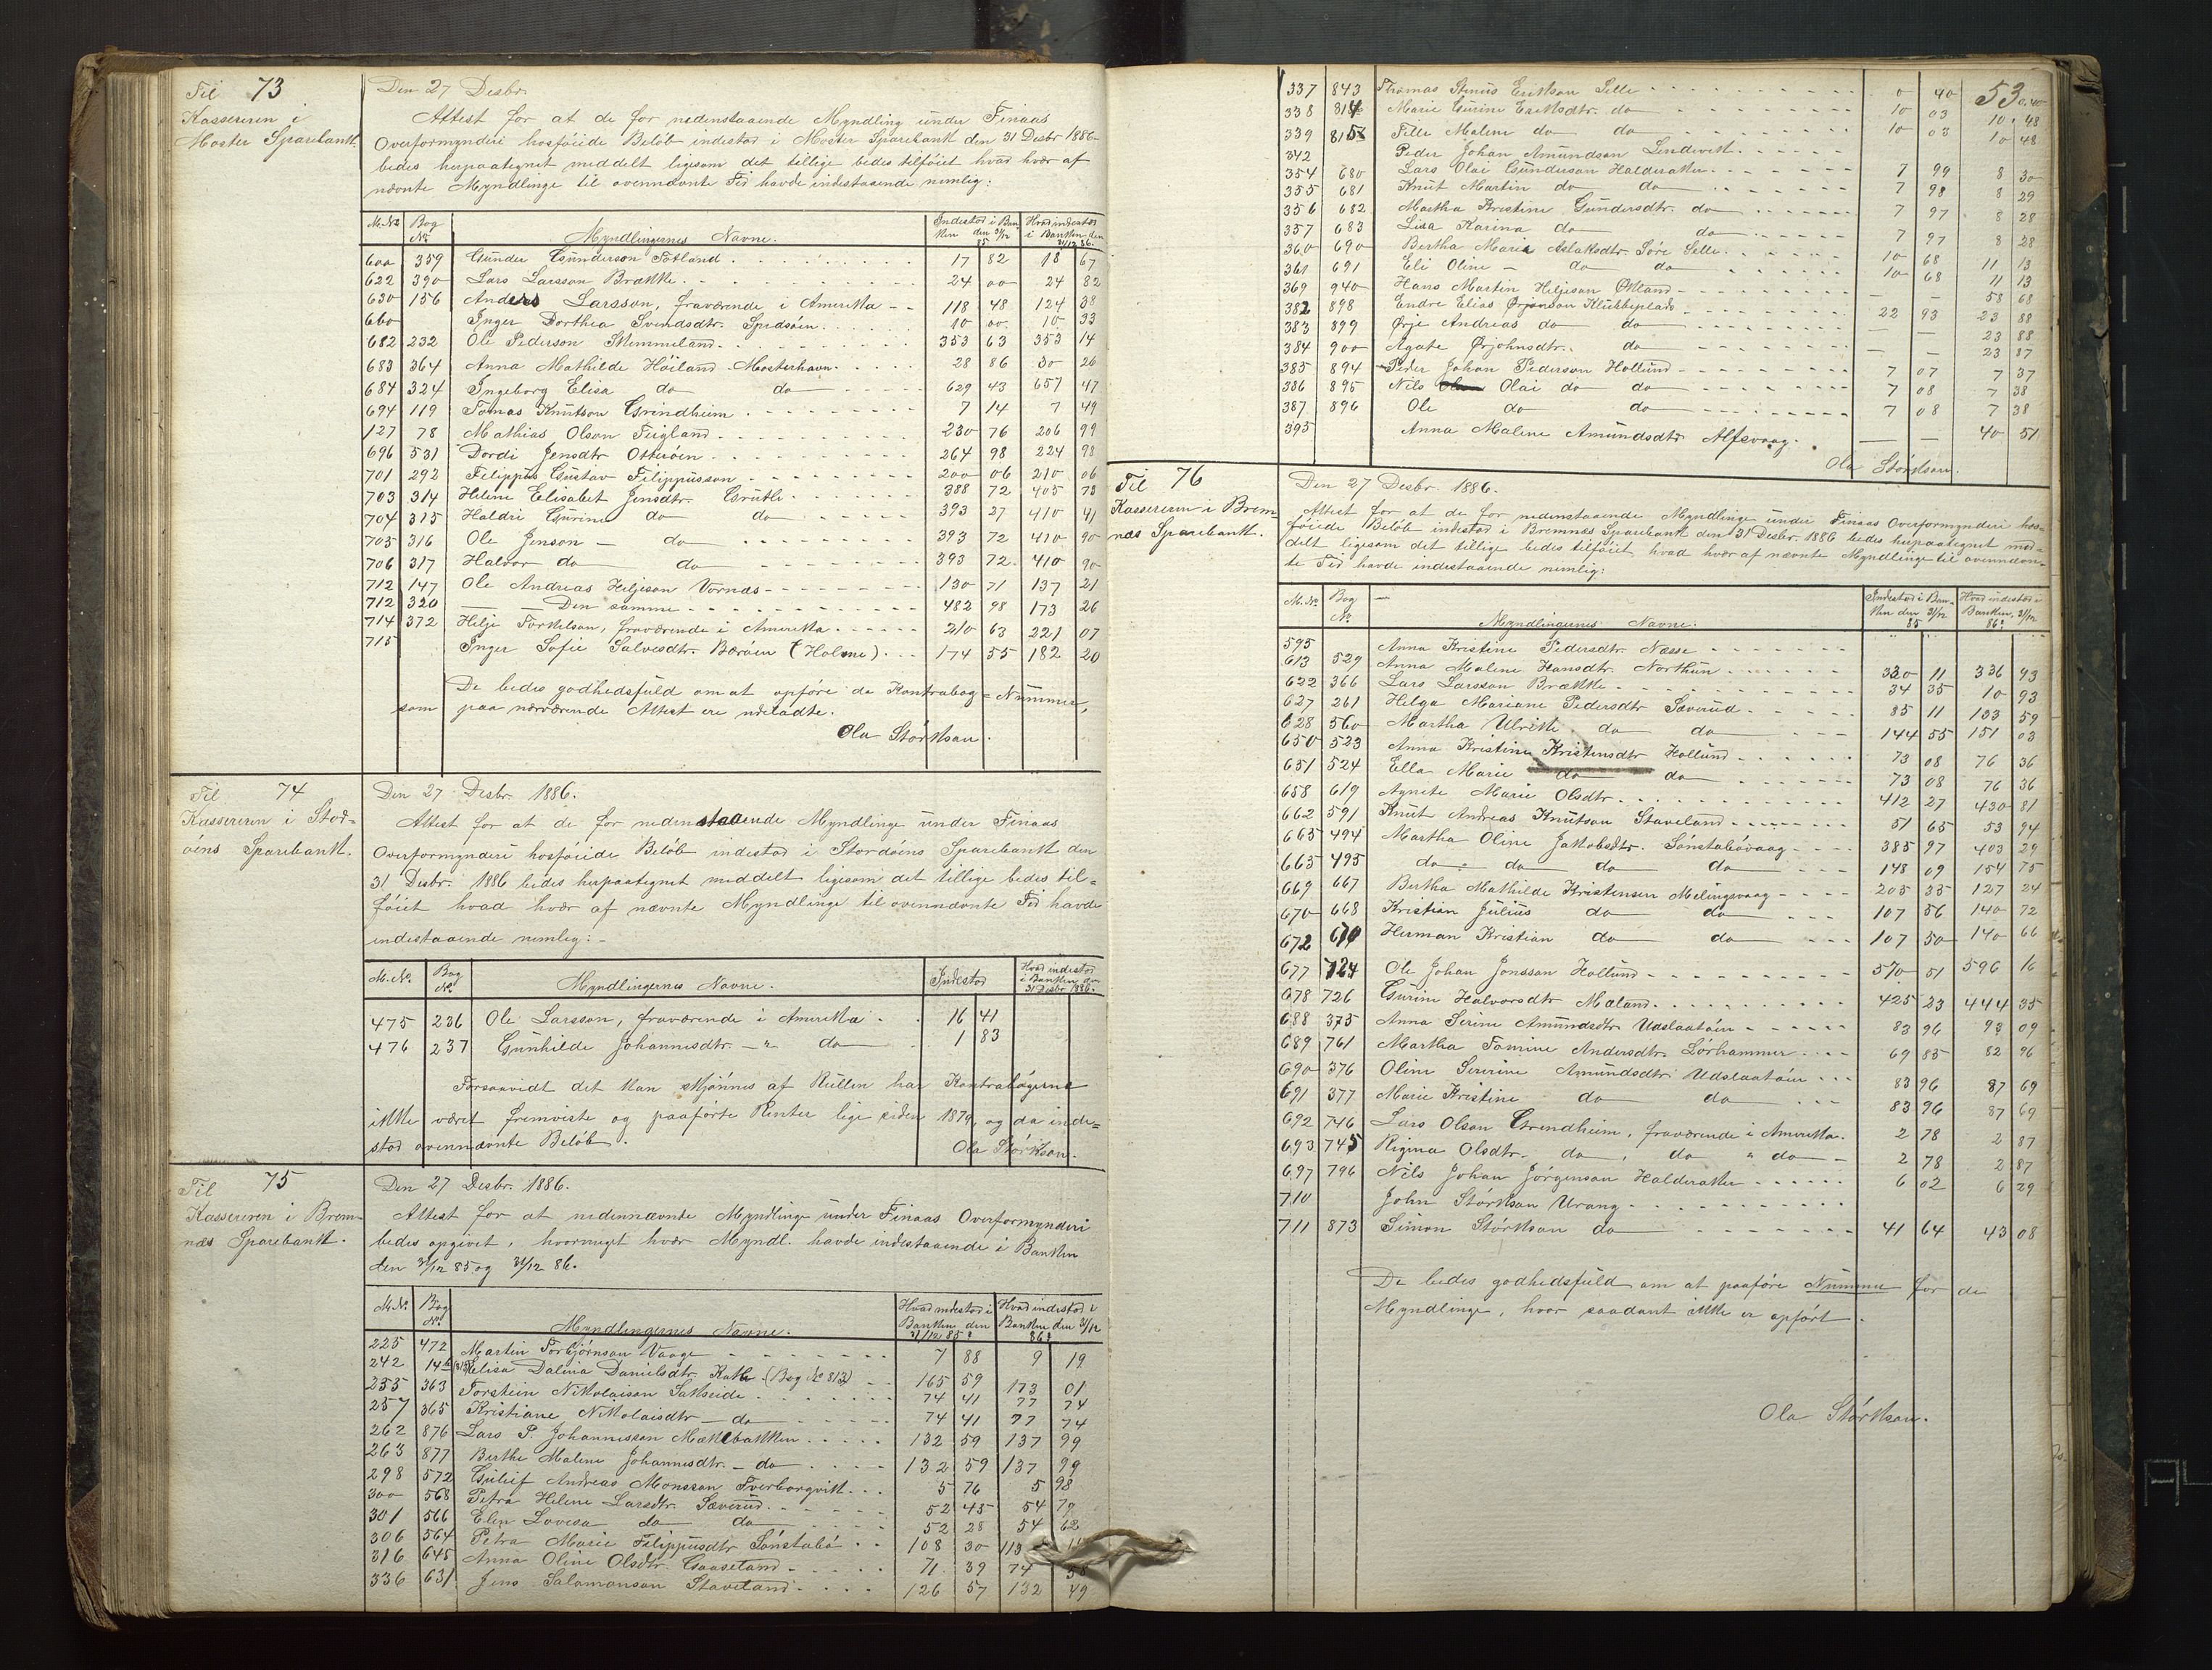 Til 73
Kassereren i
Moster Sparebank
Den 27 Desbr.
Attest for at de for nedenstaaende Myndling under Finaas
Overformynderi hosföiede Belöb indestod i Moster Sparebank den 31 Desbr 1886
bedes herpaategnet meddelt ligesom det tillige bedes tilföiet hvad hvær af
nævnte Myndlinge til ovennævnte Tid havde indestaaende nemlig:
M.No Bog No. Myndlingernes Navne. Indestod i Banken den 31/12 85 Hvad indestod i Banken den 31/12 86.
600 359 Gunder Gunderson Totland 17 82 18 67
622 390 Lars Larsson Brække 24 00 24 82
630 156 Anders Larsson, fraværende i Amerika 118 48 124 38
660 Inger Dorthea Svendsdtr. Spidsöen 10 00 10 33
682 232 Ole Pederson Skimmeland 353 63 353 14
683 364 Anna Mathilde Höiland Mosterhavn 28 86 30 26
684 324 Ingeborg Elisa do do 629 43 657 47
694 119 Tomas Knutson Grindheim 7 14 7 49
127 78 Mathias Olson Tigland 230 76 206 99
696 531 Dordi Jensdtr Otteröen 264 98 224 98
701 292 Filippus Gustav Filippusson 200 06 210 06
703 314 Helene Elisabet Jensdtr. Grutle 388 72 405 78
704 315 Haldri Gurine do do 393 27 410 41
705 316 Ole Jenson do 393 72 410 90
706 317 Halvor do do 393 72 410 90
712 147 Ole Andreas Heljeson Vornæs 130 71 137 21
712 320 Den samme 482 98 173 26
714 372 Helje Torkelson, fraværende i Amerika 210 63 221 07
715 Inger Sofie Salvesdtr. Beröen (Holme) 174 55 182 20
De bedes godhedsfuld om at opföre de Kontrabog=Nummer,
som paa nærværende Attest ere udeladte.
Ola Störkson.
Til 74
Kassereren i Stord=
öens Sparebank.
Den 27 Desbr. 1886.
Attest for at de for nedenstaaende Myndlinge under Finaas
Overformynderi hosföiede Belöb indestod i Stordöens Sparebank den
31 Desbr. 1886 bedes herpaategnet meddelt ligesom det tillige bedes til=
föiet hvad hvær af nævnte Myndlinge til ovennævnte Tid havde
indestaaende nemlig:
M.No. Bog No. Myndlingernes Navne. Indestod Hvad indestod i Banken den 31 Desbr 1886.
475 236 Ole Larsson, fraværende i Amerika 16 41
476 237 Gunhilde Johannesdtr. — " do 1 83
Forsaavidt det kan skjönnes af Rullen har Kontrabögerne
ikke været fremviste og paaförte Renter lige siden 1879, og da inde=
stod ovennævnte Belöb.
Ola Störkson.
Til 75
Kassereren i Brem
næs Sparebank.
Den 27 Desbr. 1886.
Attest for at nedennævnte Myndlinge under Finaas Overformynderi
bedes opgivet, hvormeget hvær Myndl. havde indestaaende i Banken
den 31/12 85 og 31/12 86.
M.No Bog No. Myndlingernes Navne. Hvad indestod i Banken den 31/12 85? Hvad indestod i Banken den 31/12 86?
225 472 Martin Torbjörnson Vaage 7 88 9 19
242 Elisa Dalina Danielsdtr. (Bog No 813) 165 59 173 01
255 363 Torstein Nikolaison Sakseide 74 41 77 74
257 365 Kristiane Nikolaisdtr — do 74 41 77 74
262 876 Lars P. Johannesson Mæklebakken 132 59 137 99
263 877 Berthe Malene Johannesdtr. — do 132 59 137 99
298 572 Gulief Andreas Monsson Tverborgvik 5 76 5 98
300 568 Petra Helene Larsdtr. Sæverud 52 45 54 79
301 566 Elen Lovesa do do 52 28 54 62
306 564 Petra Marie Filippusdtr Sönstabö 108 30 113
316 645 Anna Oline Olsdtr. Gaaseland 71 39 74 58
336 631 Jens Salamonson Staveland 126 57 132 49
53
337 843 Thomas Stenius Erikson Selle 0 40 0,40
338 814 Marie Gurine Eriksdtr. do 10 03 10 48
339 815 Tille Malene do do 10 03 10 48
342 Peder Johan Amundson Lindevik
354 680 Lars Olai Gunderson Halderaker 7 99 8 30
355 681 Knut Martin do do 7 98 8 29
356 682 Martha Kristine Gundersdtr. do 7 97 8 28
357 683 Lisa Karina do do 7 97 8 28
360 690 Bertha Maria Aslaksdtr. Söre Selle 10 68 11 13
361 691 Eli Oline — do do 10 68 11 13
369 940 Hans Martin Heljeson Økland — — 58 68
382 898 Endre Elias Ørjanson Klubbeplads 22 93 23 88
383 899 Ørje Andreas do do — — 23 88
384 900 Agate Ørjohnsdtr. do — — 23 87
385 894 Peder Johan Pederson Hollund 7 07 7 37
386 895 Nils Olai do do 7 08 7 38
387 896 Ole do do 7 08 7 38
395 Anna Malene Amundsdtr Alfsvaag. — — 40 51
Ola Störkson.
Til 76
Kassereren i Brem
næs Sparebank.
Den 27 Desbr. 1886.
Attest for at de for nedenstaaende Myndlinge under Finaas Overformynderi hos=
föiede Belöb indestod i Bremnæs Sparebank den 31 Desbr. 1886 bedes herpaategnet med=
delt ligesom det tillige bedes tilföiet, hvad hvær af nævnte Myndlinge til ovennævn=
te Tid havde indestaaende nemlig:
M.No. Bog No Myndlingernes Navne. Indestod i Banken den 31/12 85 Hvad indestod i Banken, 31/12 86?
595 Anna Kristine Pedersdtr. Næsse
613 529 Anna Malene Hansdtr. Northun 320 11 336 93
622 366 Lars Larsson Brække 34 35 10 93
627 261 Helga Mariane Pedersdtr Sæverud 85 11 133 59
628 560 Martha Ulrikke do do 144 55 151 03
650 523 Anna Kristine Kristensdtr Hollund 73 08 76 36
651 524 Ella Marie do do 73 08 76 36
658 619 Agnete Marie Olsdtr 412 27 430 81
662 591 Knut Andreas Knutson Staveland 51 65 53 94
665 494 Martha Oline Jakobsdtr. Sönstabövaag 385 97 403 29
665 495 do do do do 148 09 154 75
669 667 Bertha Mathilde Kristensen Melingsvaag 205 35 127 24
670 668 Kristian Julius do do 107 56 140 72
672 670 Herman Kristian do do 107 50 140 66
677 724 Ole Johan Jonsson Hollund 570 51 596 16
678 726 Gurine Halvorsdtr Mæland 425 23 444 35
688 375 Anna Serine Amundsdtr Udslaatöen 83 96 93 09
689 761 Martha Tomine Andersdtr. Sörhammer 69 85 82 96
690 376 Oline Sererine Amundsdtr Udslaatöen 83 96 87 69
691 377 Marie Kristine do do 83 96 87 69
692 746 Lars Olson Grendheim, fraværende i Amerika. 2 78 2 87
693 745 Rigina Olsdtr. do, do " do 2 78 2 87
697 796 Nils Johan Jörgenson Halderaker 6 02 6 29
710 John Störkson Urang
711 873 Simon Störkson do 41 64 43 08
De bedes godhedsfuld om at paaföre Nummer for de
Myndlinge, hvor saadant ikke er opfört.
Ola Störkson.